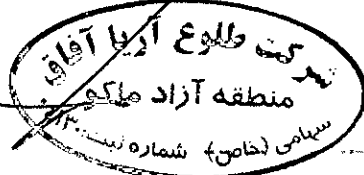 شرکت طلوع آریا آفاق
منطقه آزاد ماکو
سهامی (خاص) شماره ثبت